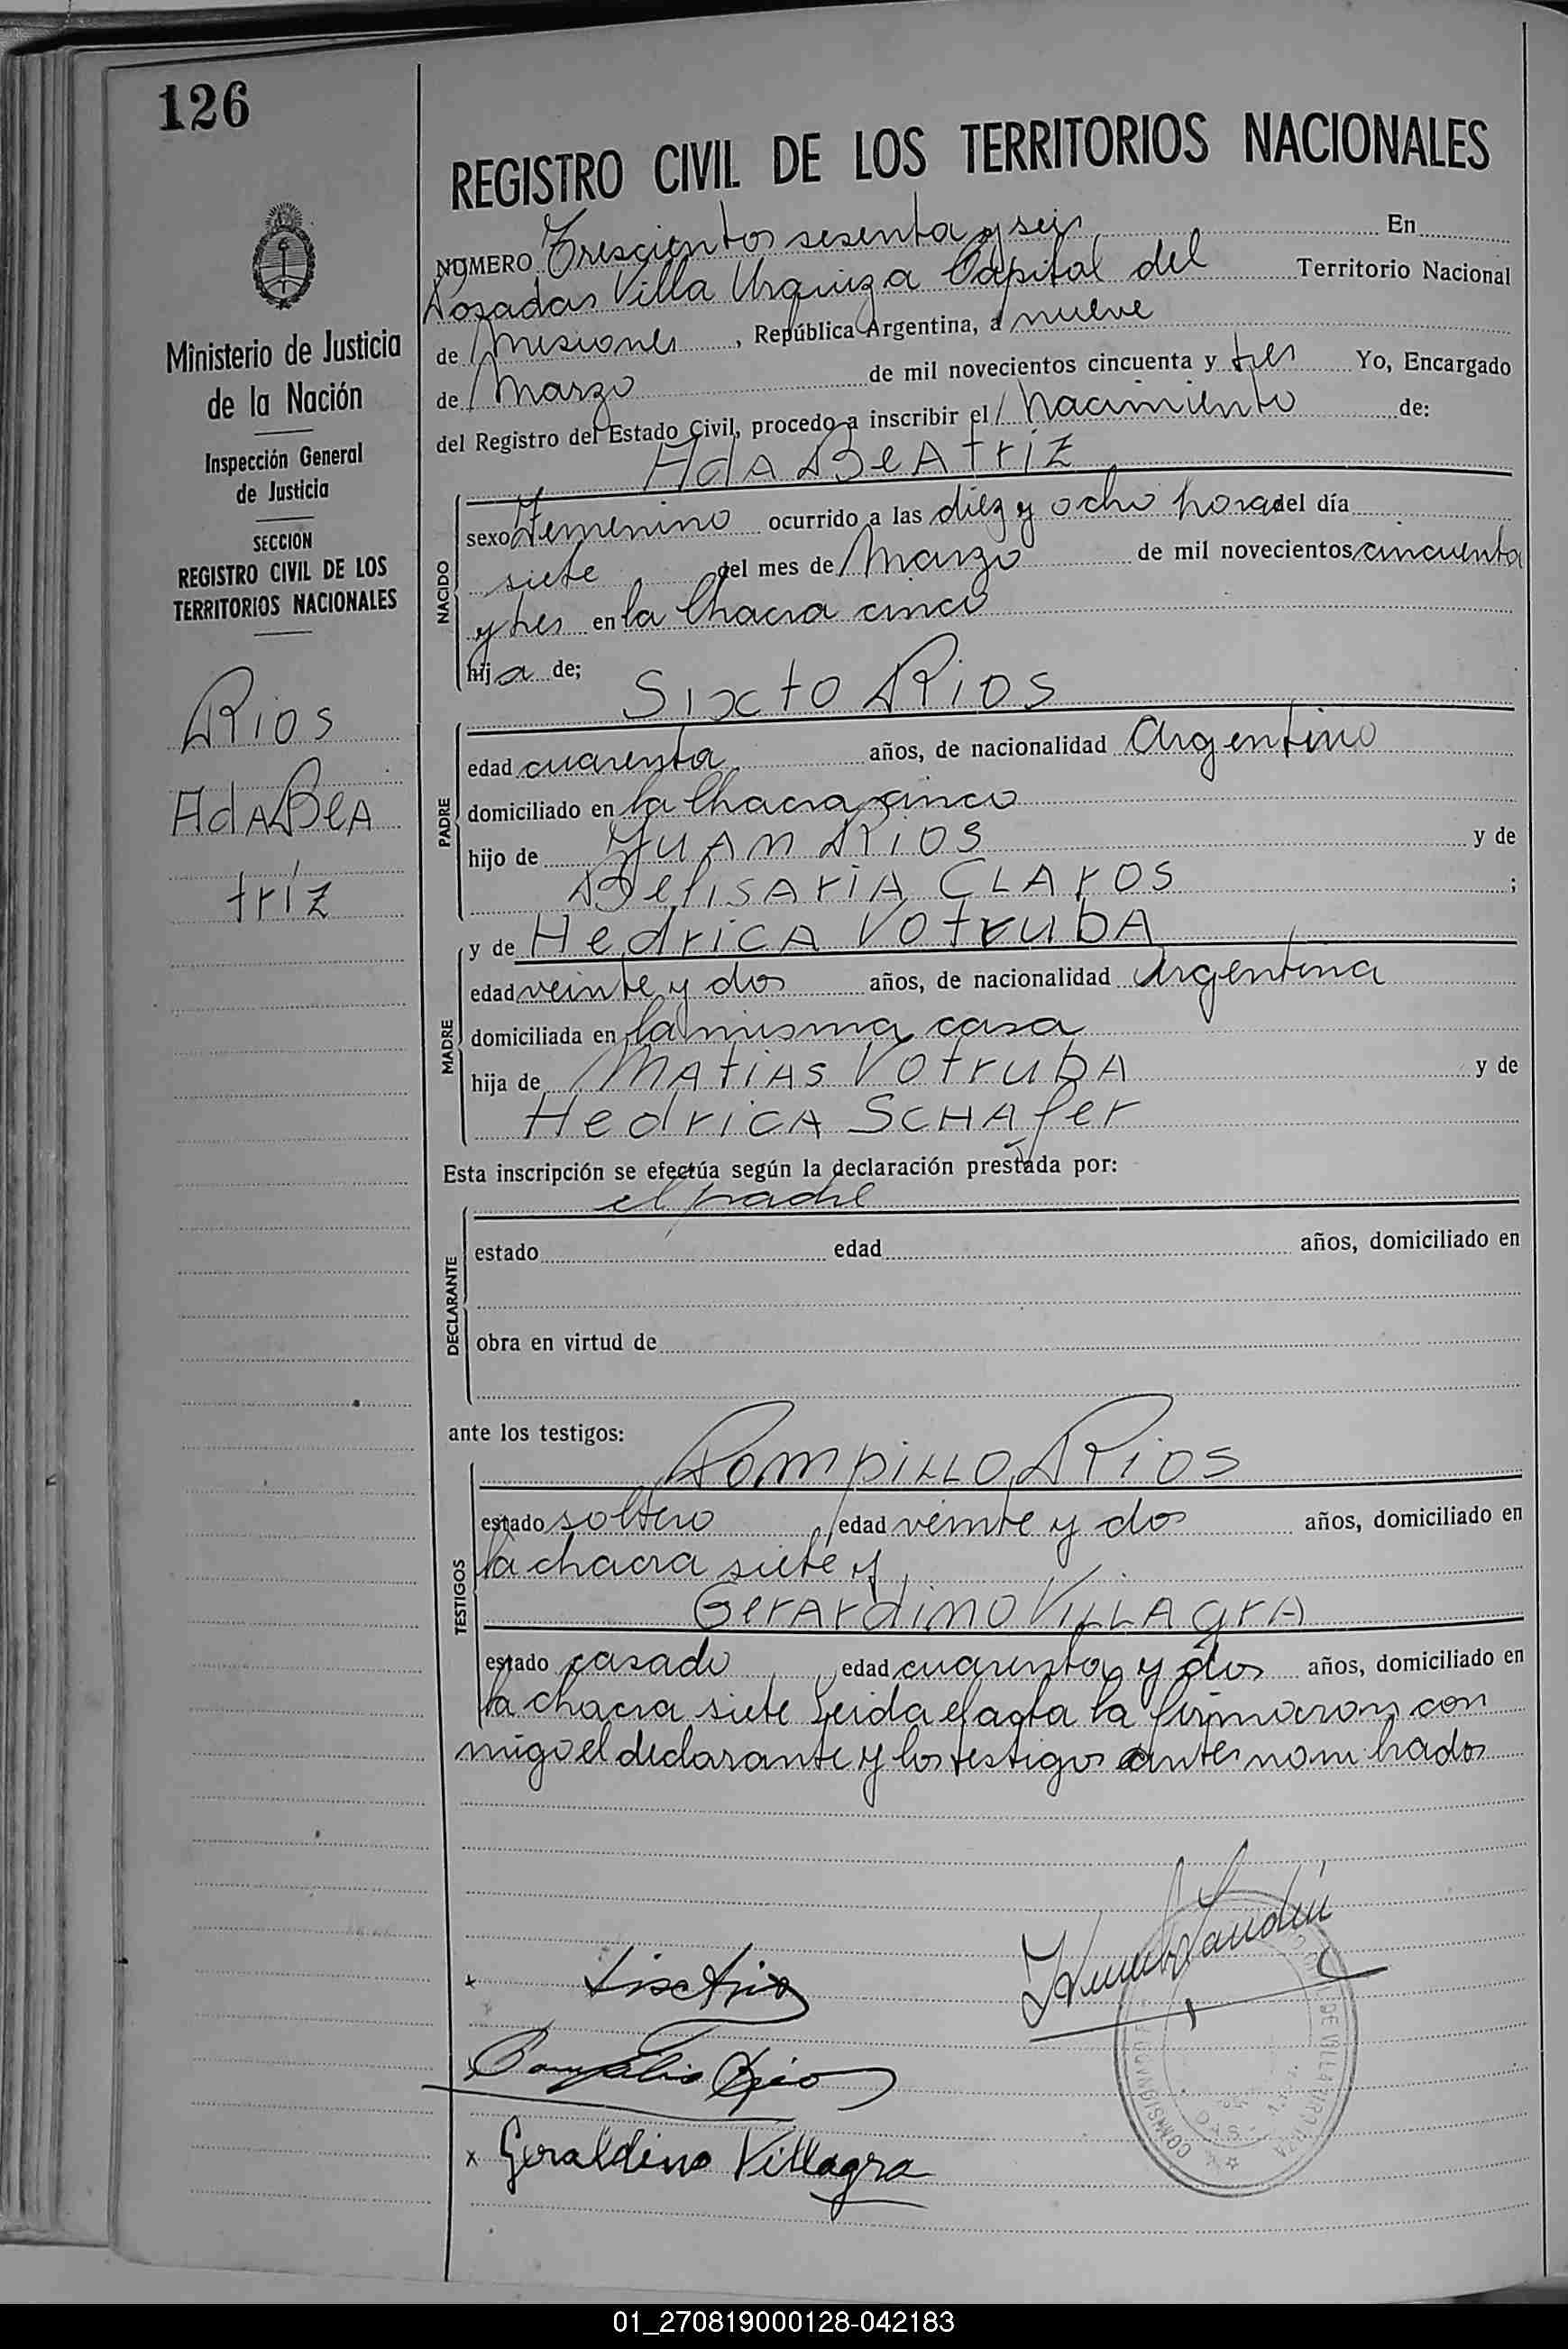 126
REGISTRO CIVIL DE LOS TERRITORIOS NACIONALES
NUMERO Trescientos sesenta y seis En
Posadas Villa Urquiza Capital del Territorio Nacional
de Misiones, República Argentina, a nueve
de Marzo de mil novecientos cincuenta y tres Yo, Encargado
del Registro del Estado Civil, procedo a inscribir el Nacimiento de:
AdA BeAtriz
NACIDO
sexo Femenino ocurrido a las diez y ocho horas del día
siete del mes de Marzo de mil novecientos cincuenta
y tres en la Chacra cinco
hija de;
Sixto Rios
PADRE
edad cuarenta años, de nacionalidad Argentino
domiciliado en la Chacra cinco
hijo de JUAN RIOS y de
BelisAriA CLAros ;
MADRE
y de HedricA VotrubA
edad veinte y dos años, de nacionalidad Argentina
domiciliada en la misma casa
hija de MAtiAs VotrubA y de
HedricA SCHAfer
Esta inscripción se efectúa según la declaración prestada por:
el padre
DECLARANTE
estado edad años, domiciliado en
obra en virtud de
ante los testigos:
PompiLLO Rios
TESTIGOS
estado soltero edad veinte y dos años, domiciliado en
la chacra siete y
GerArdino ViLLAgrA
estado casado edad cuarenta y dos años, domiciliado en
la chacra siete Leida el acta la firmaron con
migo el declarante y los testigos antes nombrados
Geraldino Villagra
Ministerio de Justicia
de la Nación
Inspección General
de Justicia
SECCION
REGISTRO CIVIL DE LOS
TERRITORIOS NACIONALES
Rios
AdA BeA
triz
01_270819000128-042183